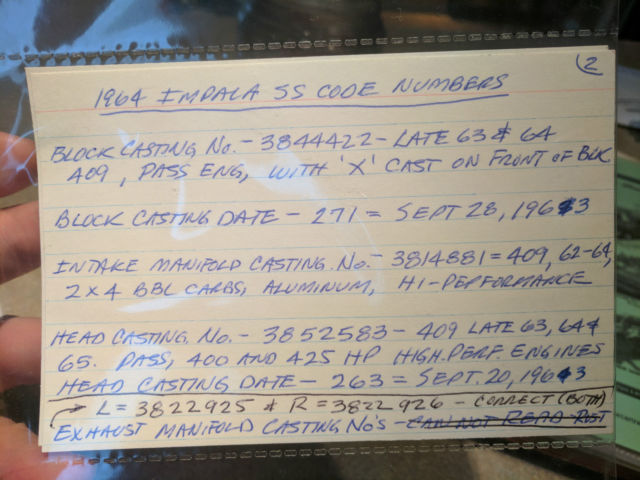 2
1964 IMPALA SS CODE NUMBERS
BLOCK CASTING No. - 3844422 - LATE 63 & 64
409, PASS ENG, WITH 'X' CAST ON FRONT OF BLK.
BLOCK CASTING DATE - 271 = SEPT 28, 1963
INTAKE MANIFOLD CASTING. No. - 3814881 = 409, 62-64,
2X4 BBL CARBS, ALUMINUM, HI-PEPFORMANCE
HEAD CASTING. No. - 3852583 - 409 LATE 63, 64 &
65. PASS, 400 AND 425 HP HIGH. PERF. ENGINES
HEAD CASTING DATE - 263 = SEPT. 20, 1963
L = 3822925 & R = 3822926 - CORRECT (BOTH)
EXHAUST MANIFOLD CASTING No's - CAN NOT READ RUST